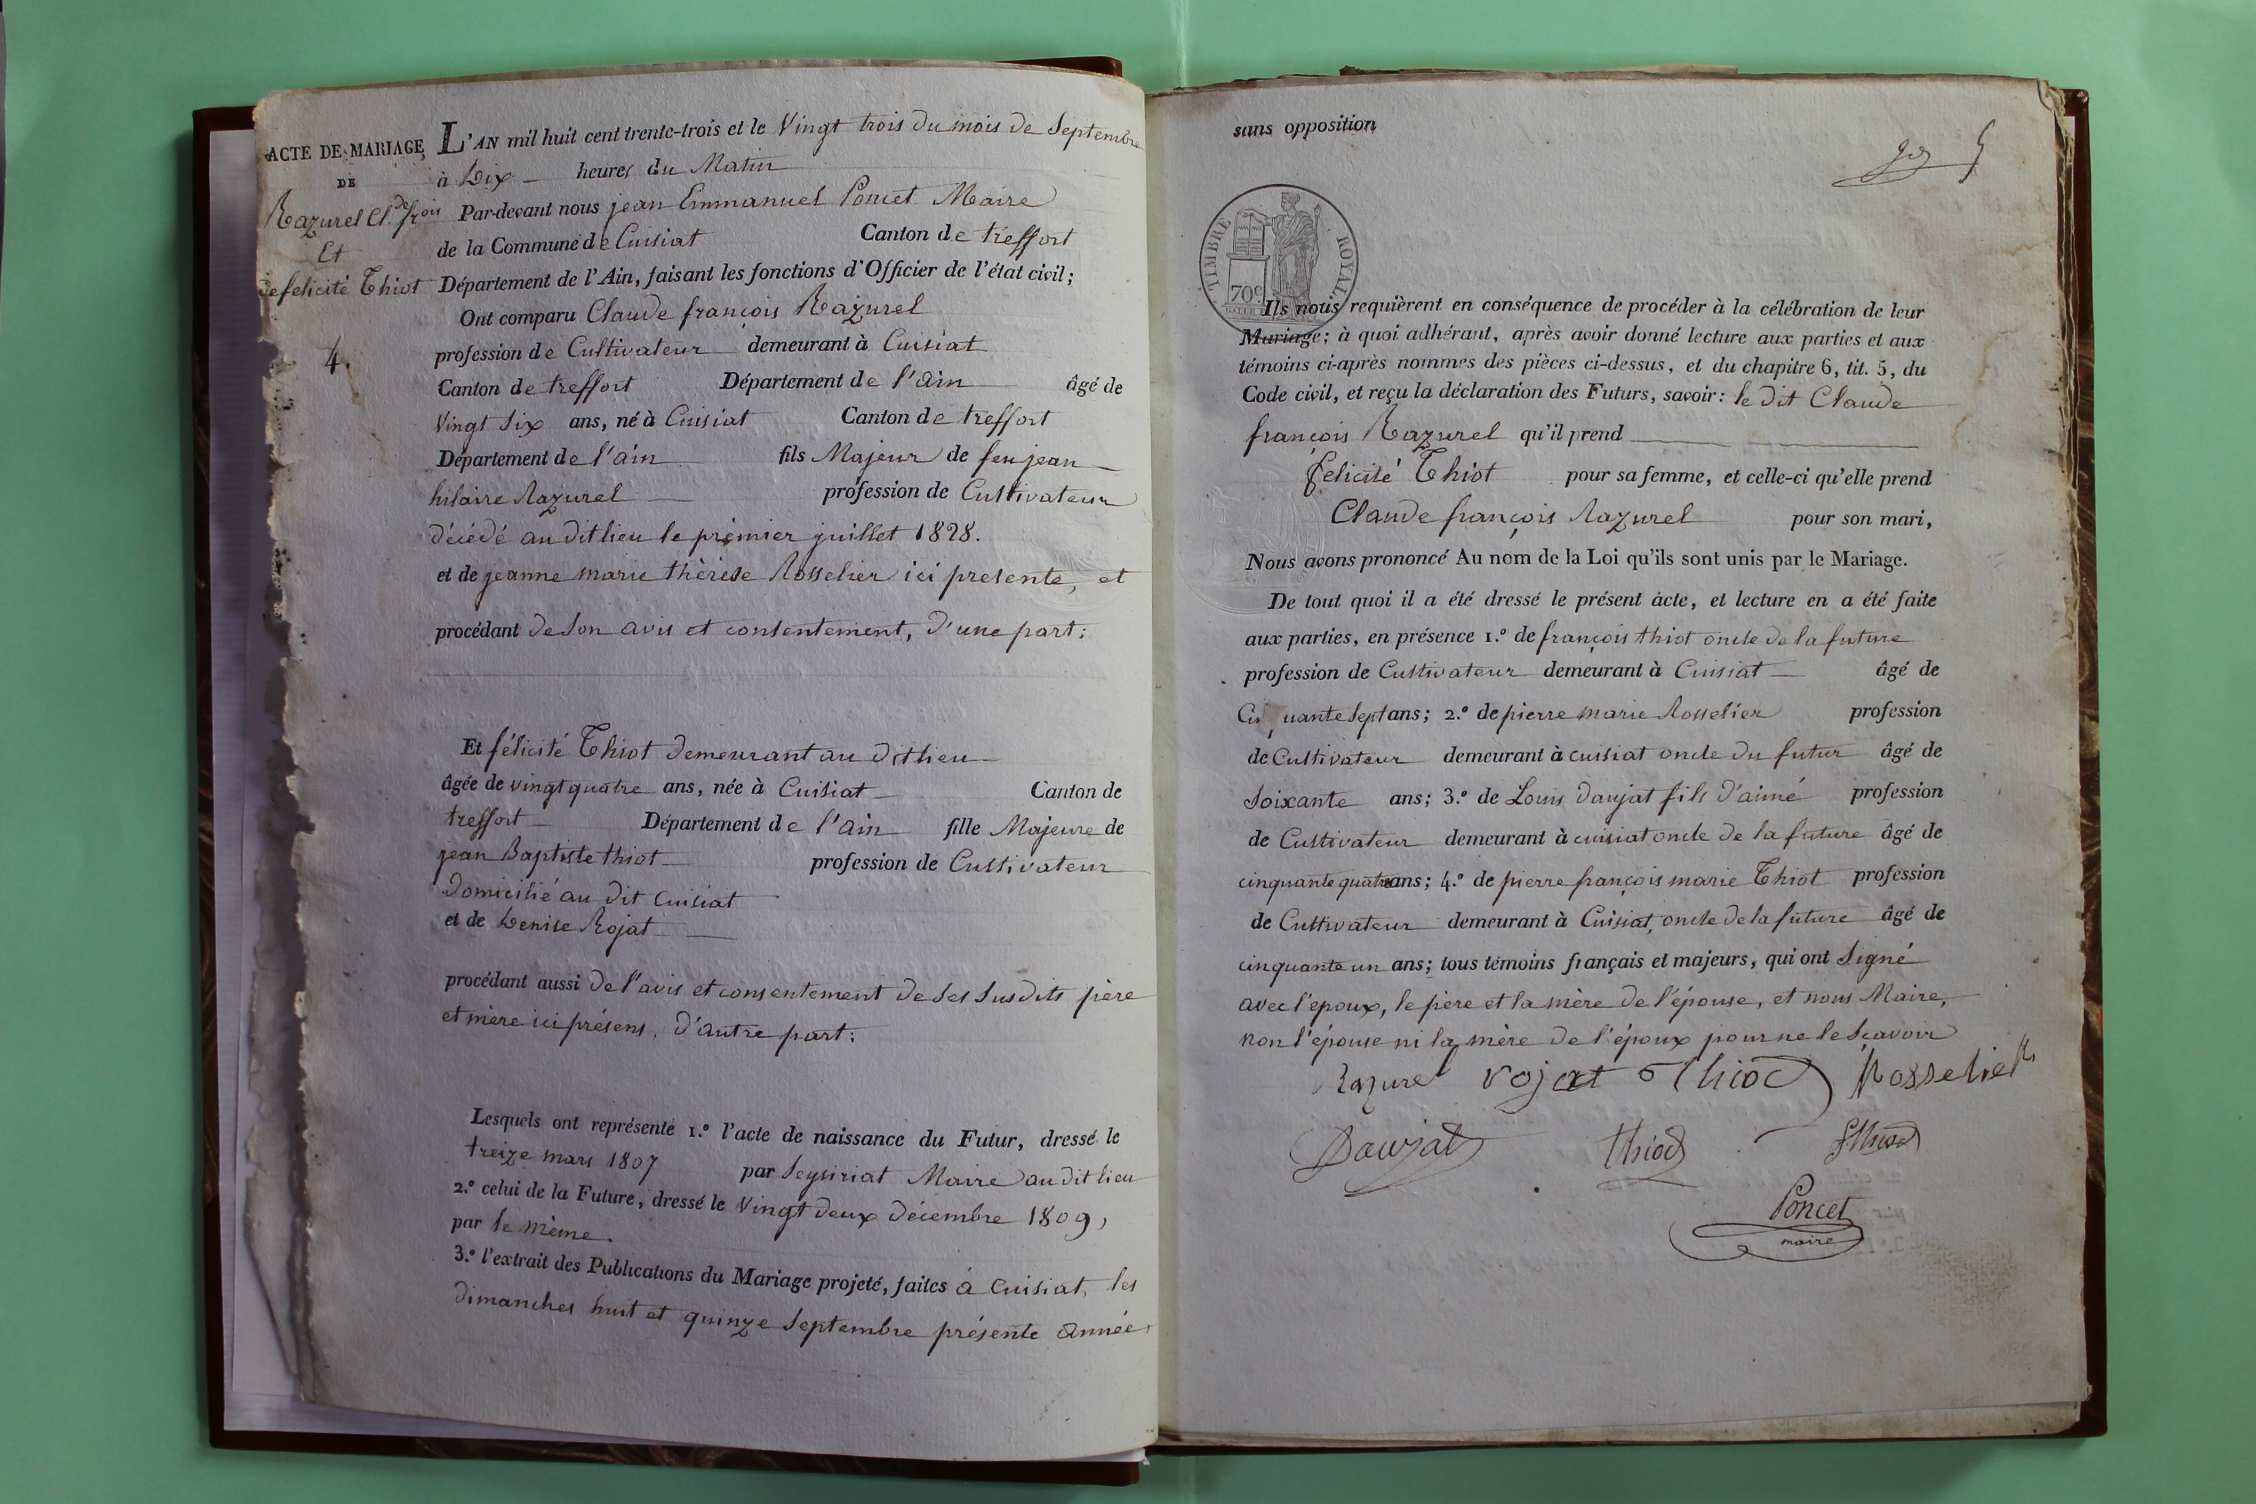 ACTE DE MARIAGE
DE
Razurel Cl.de frois
Et
de felicité Thiot
4.
L'AN mil huit cent trente-trois et le Vingt trois du mois de Septembre
à Dix heures du Matin
Par-devant nous jean Emmanuel Poncet Maire
de la Commune de Cuisiat Canton de treffort
Département de l'Ain, faisant les fonctions d'Officier de l'état civil;
Ont comparu Claude françois Razurel
profession de Cultivateur demeurant à Cuisiat
Canton de treffort Département de l'ain âgé de
Vingt Six ans, né à Cuisiat Canton de treffort
Département de l'ain fils Majeur de feu jean
hilaire Razurel profession de Cultivateur
décédé au dit lieu le premier juillet 1828.
et de jeanne marie thérèse Rosselier ici presente, et
procédant de Son avis et consentement, d'une part:
Et félicité Thiot demeurant au dit lieu
âgée de vingt quatre ans, née à Cuisiat Canton de
treffort Département de l'ain fille Majeure de
jean Baptiste thiot profession de Cultivateur
Domicilié au dit Cuisiat
et de Denise Rojat
procédant aussi de l'avis et consentement de Ses Susdits père
et mère ici présens, d'autre part:
Lesquels ont représenté 1.º l'acte de naissance du Futur, dressé le
treize mars 1807 par Seysiriat Maire au dit lieu
2.º celui de la Future, dressé le Vingt deux décembre 1809,
par le même.
3.º l'extrait des Publications du Mariage projeté, faites à Cuisiat, les
dimanches huit et quinze Septembre présente année
sans opposition
TIMBRE ROYAL
70c
Ils nous requièrent en conséquence de procéder à la célébration de leur
Mariage; à quoi adhérant, après avoir donné lecture aux parties et aux
témoins ci-après nommés des pièces ci-dessus, et du chapitre 6, tit. 5, du
Code civil, et reçu la déclaration des Futurs, savoir: le dit Claude
françois Razurel qu'il prend
felicité Thiot pour sa femme, et celle-ci qu'elle prend
Claude françois Razurel pour son mari,
Nous avons prononcé Au nom de la Loi qu'ils sont unis par le Mariage.
De tout quoi il a été dressé le présent acte, et lecture en a été faite
aux parties, en présence 1.º de françois thiot oncle de la future
profession de Cultivateur demeurant à Cuisiat âgé de
Cinquante Sept ans; 2.º de pierre marie Rosselier profession
de Cultivateur demeurant à cuisiat oncle du futur âgé de
Soixante ans; 3.º de Louis Daujat fils d'aimé profession
de Cultivateur demeurant à cuisiat oncle de la future âgé de
cinquante quatre ans; 4.º de pierre françois marie Thiot profession
de Cultivateur demeurant à Cuisiat, oncle de la future âgé de
cinquante un ans; tous témoins français et majeurs, qui ont Signé
avec l'epoux, le père et la mère de l'épouse, et nous Maire,
non l'épouse ni la mère de l'époux pour ne le Sçavoir
Razurel rojat Thiod Rosselier
Daujat thiod fthiod
Poncet
maire